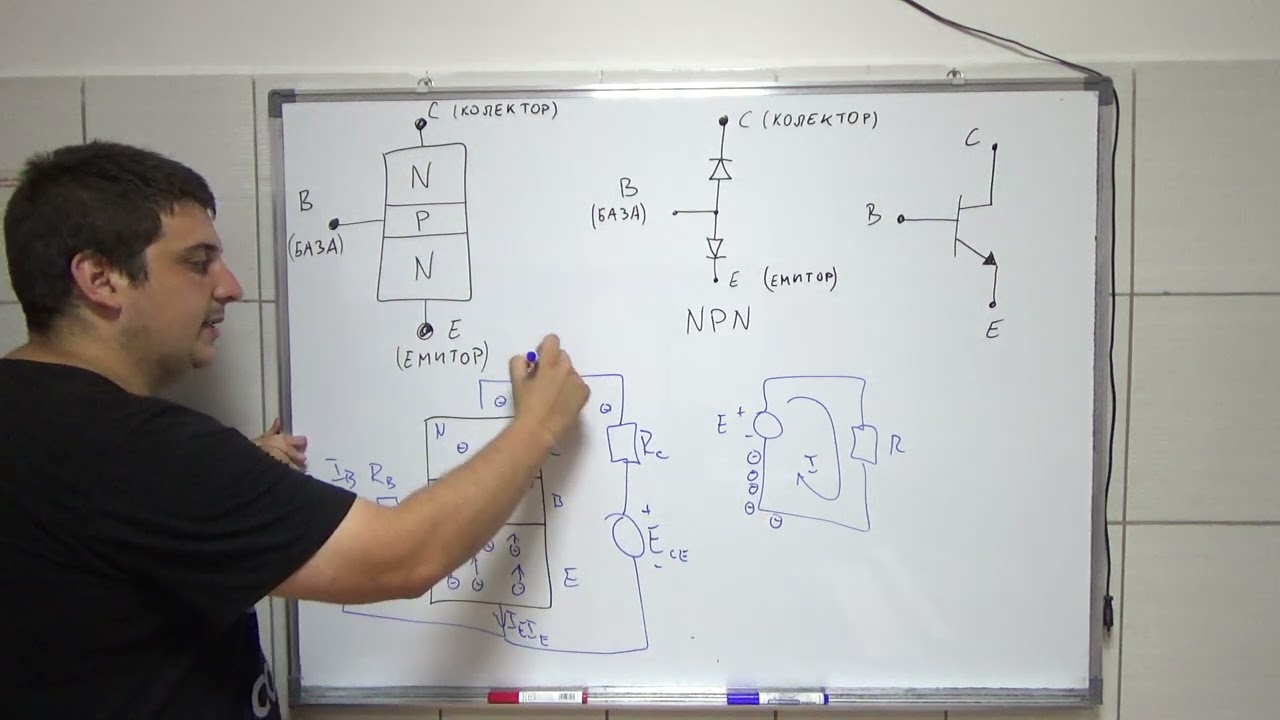 C (КОЛЕКТОР)
N
P
N
B
(БАЗА)
E
(ЕМИТОР)
C (КОЛЕКТОР)
B
(БАЗА)
E (ЕМИТОР)
NPN
C
B
E
N
I_B R_B
R_C
B
+
E_CE
-
E
I_E I_E
E +
-
I
R